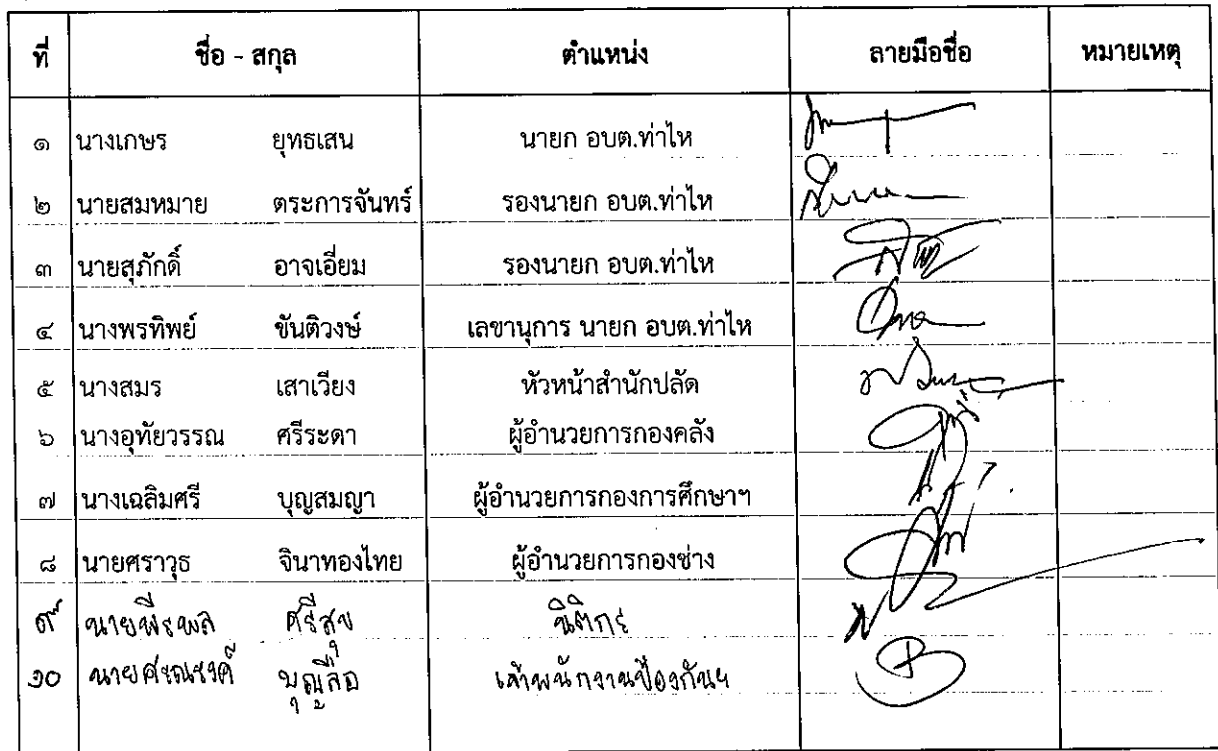 ที่ ชื่อ - สกุล ตำแหน่ง ลายมือชื่อ หมายเหตุ
๑ นางเกษร ยุทธเสน นายก อบต.ท่าไห
๒ นายสมหมาย ตระการจันทร์ รองนายก อบต.ท่าไห
๓ นายสุภักดิ์ อาจเอี่ยม รองนายก อบต.ท่าไห
๔ นางพรทิพย์ ขันติวงษ์ เลขานุการ นายก อบต.ท่าไห
๕ นางสมร เสาเวียง หัวหน้าสำนักปลัด
๖ นางอุทัยวรรณ ศรีระดา ผู้อำนวยการกองคลัง
๗ นางเฉลิมศรี บุญสมญา ผู้อำนวยการกองการศึกษาฯ
๘ นายศราวุธ จินาทองไทย ผู้อำนวยการกองช่าง
๙ นายพีรพล ศรีสุข นิติกร
๑๐ นายศรณรงค์ บุญลือ เจ้าพนักงานป้องกันฯ